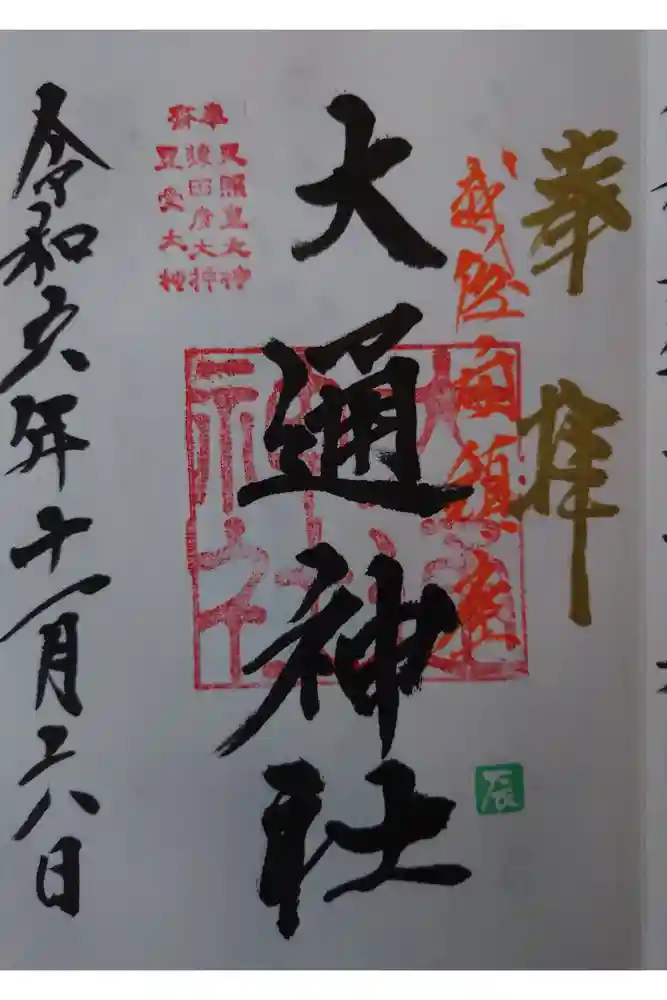 奉拝
鎮座
大通神社
大通神社
奉斎
天照皇大神
猿田彦大神
豊受大神
辰
令和六年十一月二八日